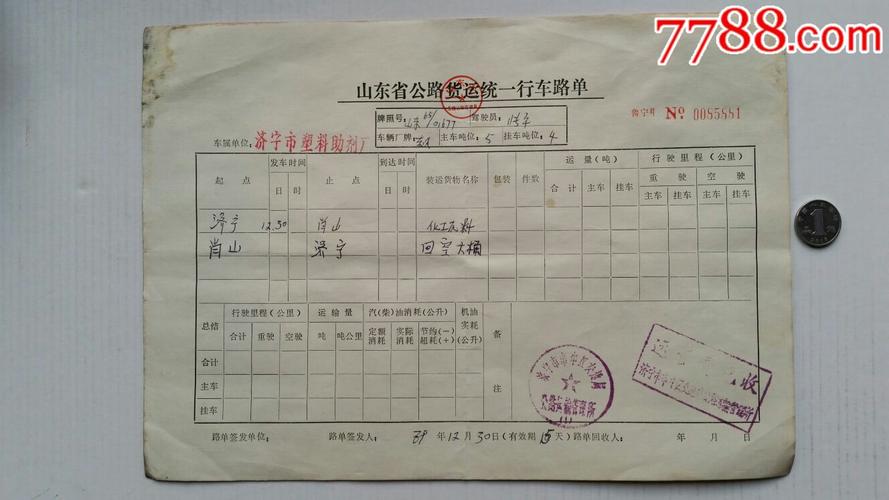 7788.com
山东省公路货运统一行车路单
鲁宁 No 0085881
牌照号: 山东 65/01677 驾驶员:
车属单位: 济宁市塑料助剂厂 车辆厂牌: 主车吨位: 5 挂车吨位: 4
起点 发车时间 止点 到达时间 装运货物名称 包装 件数 运量(吨) 行驶里程(公里)
日 时 日 时 合计 主车 挂车 重驶 空驶
主车 挂车 主车 挂车
济宁 12.30 肖山 化工原料
肖山 济宁 回空大桶
总结 行驶里程(公里) 运输量 汽(柴)油消耗(公升) 机油实耗(公升) 备注
合计 重驶 空驶 吨 吨公里 定额消耗 实际消耗 节约(一)超耗(+)
合计
主车
挂车
济宁市市中区交通局
公路运输管理所
(1)
收
路单签发单位: 路单签发人: 89年12月30日(有效期15天) 路单回收人: 年 月 日